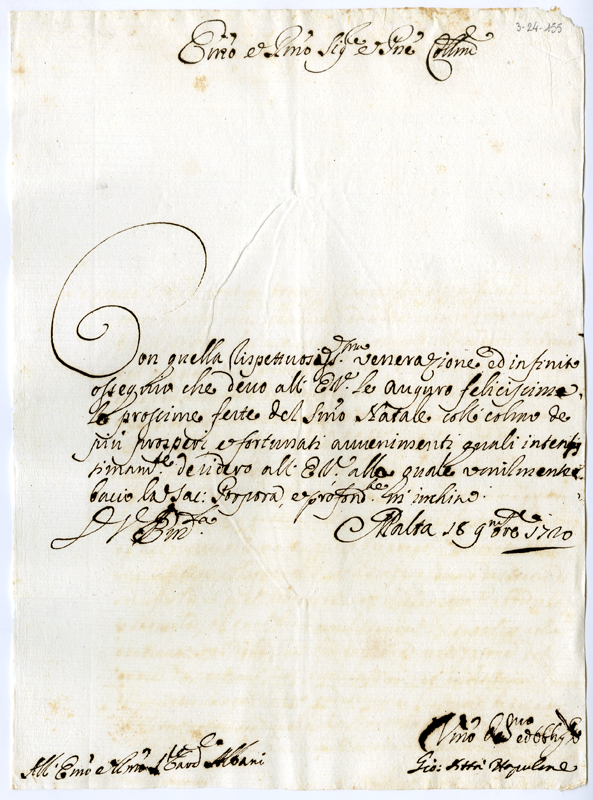 3-24-155
Emo e Rmo Sig.e e Pne Collmo
Con quella Rispettuosiss.ma venerazione ed infinito
ossequio che devo all' E.V. le auguro felicissime
le prossime feste del Smo Natale coll' colmo de
più prosperi e fortunati avvenimenti quali inten-
timam.te desidero all' E.V. alla quale umilmente
bacio la Sac: Porpora, e profond.te m' inchino.
D V Em.za Malta 18 9mbre 1720
Umo Dev.mo ed Obbl.
All' Emo e Rmo Sr Card.le Albani
Gio: Batta